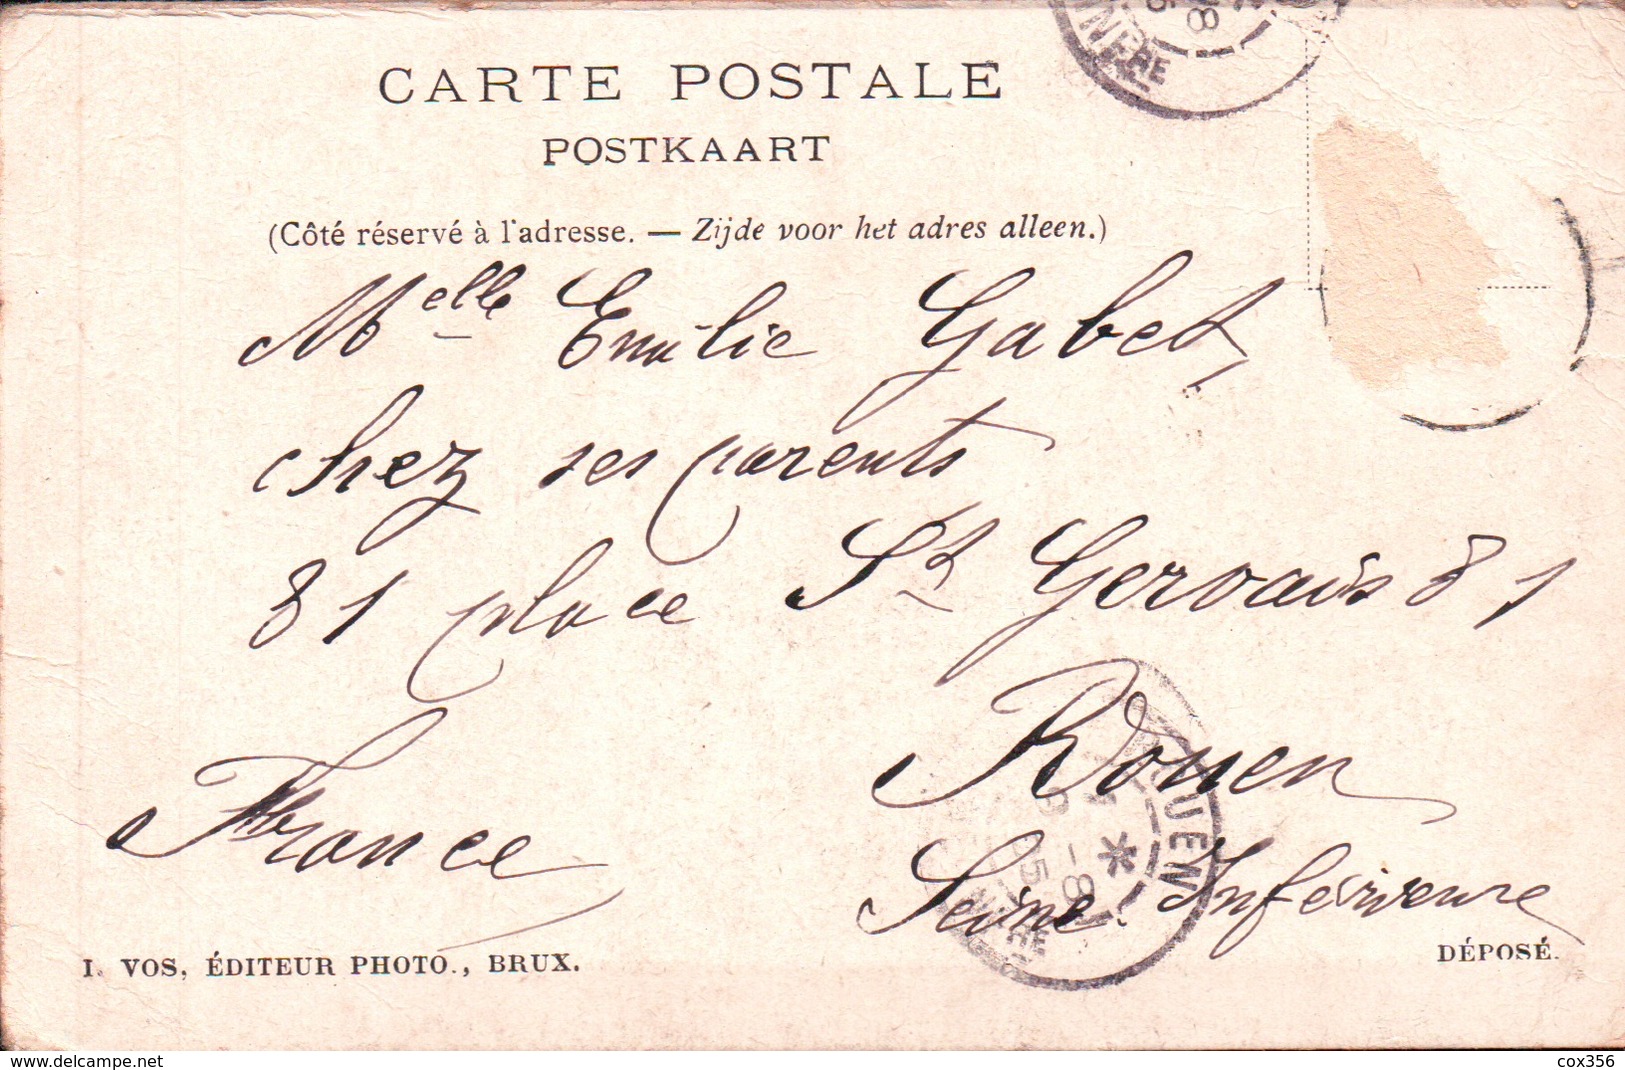 CARTE POSTALE
POSTKAART
(Côté réservé à l'adresse. — Zijde voor het adres alleen.)
Melle Emilie Gabet,
chez ses parents
81 place St Gervais 81
Rouen
France
Seine Inférieure
I. VOS, ÉDITEUR PHOTO., BRUX.
DÉPOSÉ.
www.delcampe.net
cox356